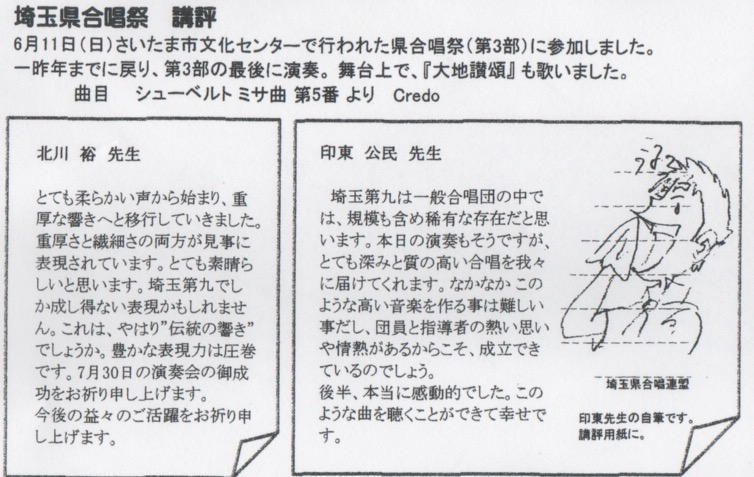 埼玉県合唱祭　講評
6月11日(日)さいたま市文化センターで行われた県合唱祭(第3部)に参加しました。
一昨年までに戻り、第3部の最後に演奏。 舞台上で、『大地讃頌』も歌いました。
曲目　シューベルト ミサ曲 第5番 より　Credo
北川　裕　先生
とても柔らかい声から始まり、重
厚な響きへと移行していきました。
重厚さと繊細さの両方が見事に
表現されています。とても素晴ら
しいと思います。埼玉第九でし
か成し得ない表現かもしれませ
ん。これは、やはり”伝統の響き”
でしょうか。豊かな表現力は圧巻
です。7月30日の演奏会の御成
功をお祈り申し上げます。
今後の益々のご活躍をお祈り申
し上げます。
印東　公民　先生
埼玉第九は一般合唱団の中で
は、規模も含め稀有な存在だと思
います。本日の演奏もそうですが、
とても深みと質の高い合唱を我々
に届けてくれます。なかなか この
ような高い音楽を作る事は難しい
事だし、団員と指導者の熱い思い
や情熱があるからこそ、成立でき
ているのでしょう。
後半、本当に感動的でした。この
ような曲を聴くことができて幸せで
す。
埼玉県合唱連盟
印東先生の自筆です。
講評用紙に。